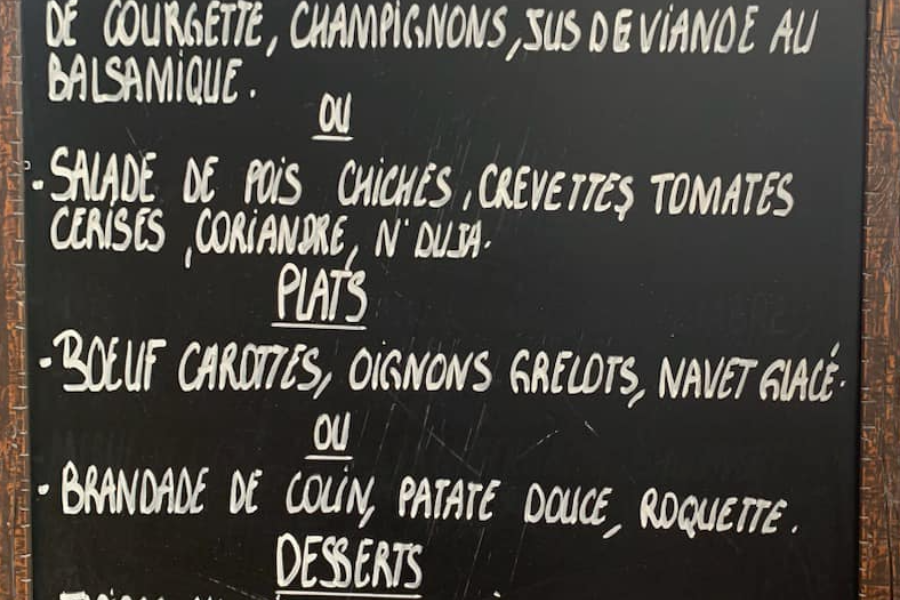 DE COURGETTE, CHAMPIGNONS, JUS DE VIANDE AU
BALSAMIQUE.
OU
• SALADE DE POIS CHICHES, CREVETTES TOMATES
CERISES, CORIANDRE, N'DUJA.
PLATS
• BOEUF CAROTTES, OIGNONS GRELOTS, NAVET GLACÉ.
OU
• BRANDADE DE COLIN, PATATE DOUCE, ROQUETTE.
DESSERTS